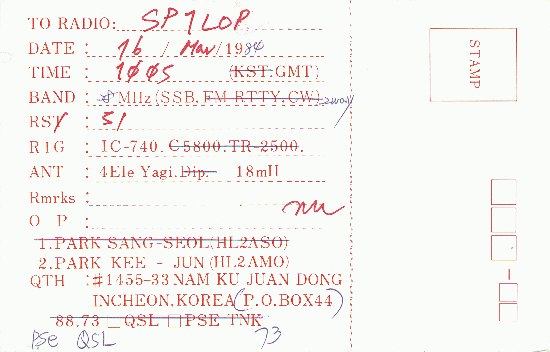 TO RADIO: SP1LOP
DATE : 16 / Mar / 1984
TIME : 1005 (KST.GMT)
BAND : MHz (SSB, FM.RTTY.CW) 2way
RSY : 51
RIG : IC-740. C5800.TR-2500.
ANT : 4Ele Yagi. Dip. 18mH
Rmrks :
O P :
1.PARK SANG-SEOL (HL2ASO)
2.PARK KEE - JUN (HL2AMO)
QTH : #1455-33 NAM KU JUAN DONG
INCHEON, KOREA (P.O.BOX44)
88.73 □ QSL □ PSE TNK
PSe QSL 73
STAMP